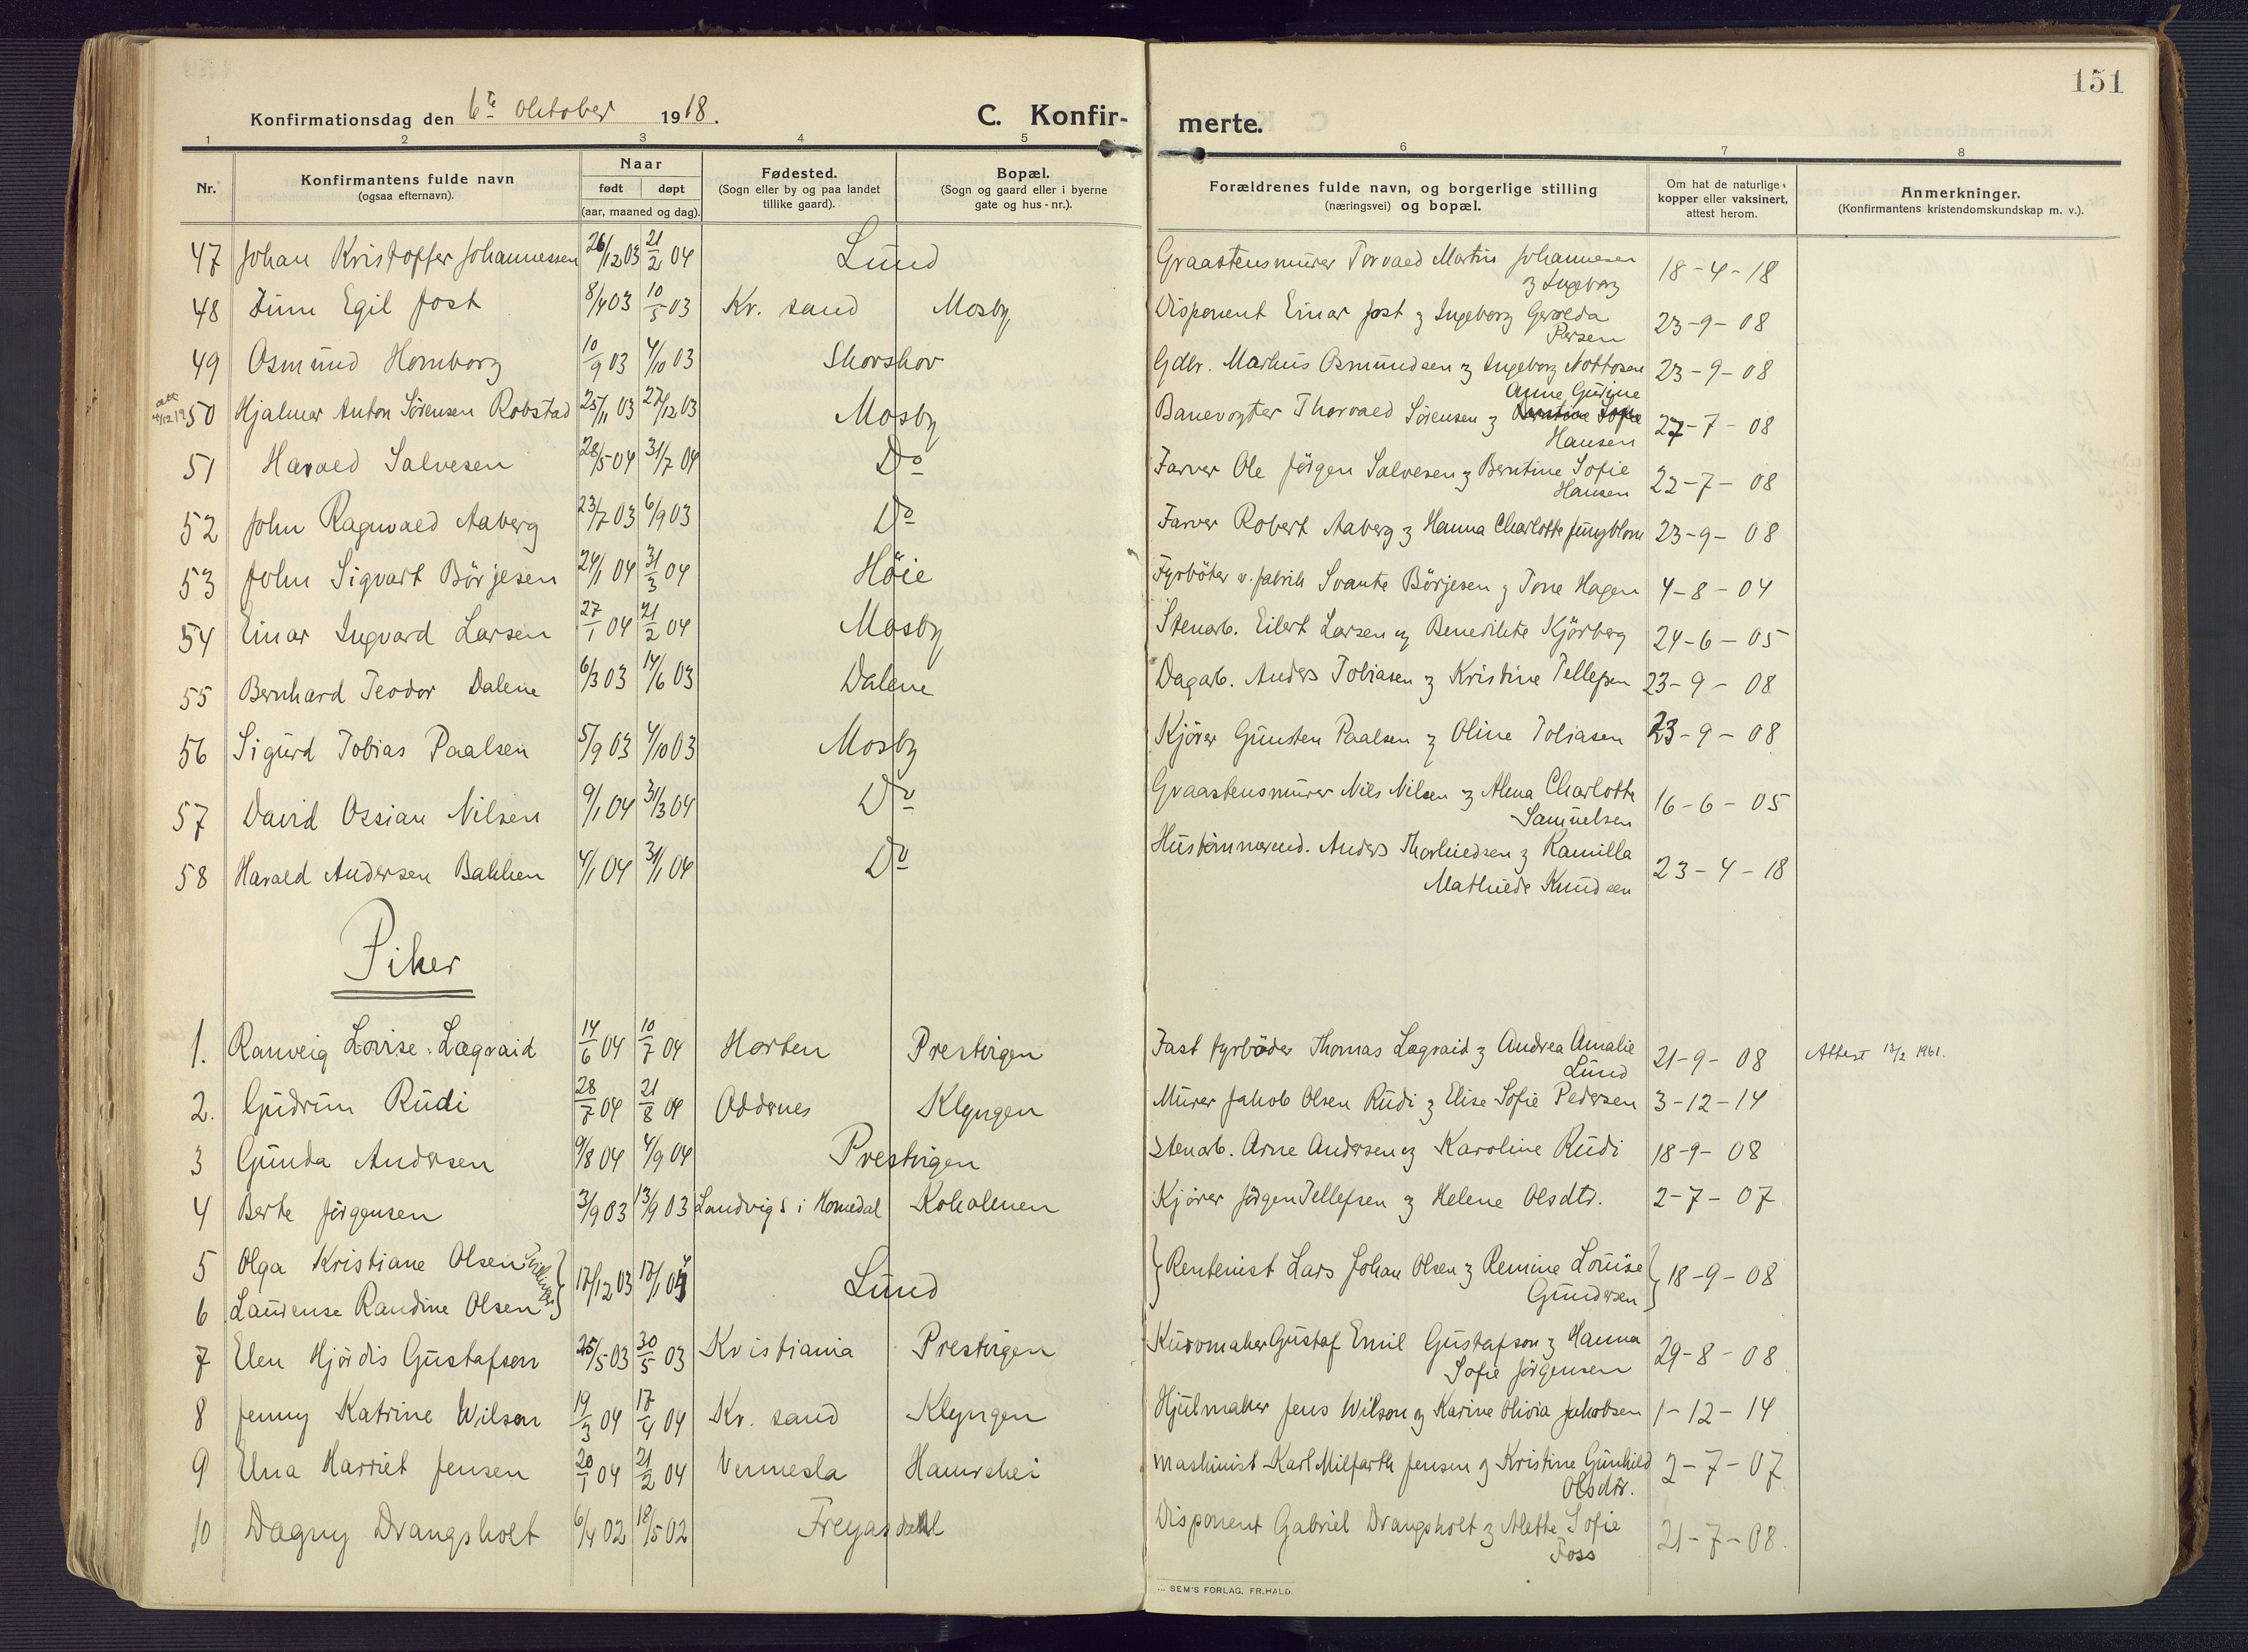 151
Konfirmationsdag den 6te Oktober 1918.
C. Konfir-
merte.
1 2 3 4 5 6 7 8
Nr.
Konfirmantens fulde navn
(ogsaa efternavn).
Naar
født døpt
(aar, maaned og dag).
Fødested.
(Sogn eller by og paa landet
tillike gaard).
Bopæl.
(Sogn og gaard eller i byerne
gate og hus-nr.).
Forældrenes fulde navn, og borgerlige stilling
(næringsvei) og bopæl.
Om hat de naturlige
kopper eller vaksinert,
attest herom.
Anmerkninger.
(Konfirmantens kristendomskundskap m. v.).
47 Johan Kristoffer Johannessen 26/12 03 21/2 04 Lund Graastensmurer Torvald Martin Johannesen 18-4-18
og Ingeborg
48 Finn Egil Jost 8/4 03 10/5 03 Kr. sand Mosby Disponent Einar Jost og Ingeborg Gerolda 23-9-08
Persen
49 Osmund Homborg 10/9 03 4/10 03 Skorskov Gdbr. Markus Osmundsen og Ingeborg Nottosen 23-9-08
Anne Gurine
50 Hjalmar Anton Sørensen Robstad 25/11 03 27/12 03 Mosby Banevogter Thorvald Sörensen og Berntine Sofie 27-7-08
Hansen
51 Harald Salvesen 28/5 04 31/7 04 Do Farver Ole Jörgen Salvesen og Berntine Sofie 22-7-08
Hansen
52 John Ragnvald Aaberg 23/7 03 6/9 03 Do Farver Robert Aaberg og Hanna Charlotte Jungblom 23-9-08
53 John Sigvart Börjesen 24/1 04 31/3 04 Höie Fyrböter v. fabrik Svante Börjesen og Tone Hagen 4-8-04
54 Einar Ingvard Larsen 27/1 04 21/2 04 Mosby Stenarb. Eilert Larsen og Benedikte Kjörberg 24-6-05
55 Bernhard Teodor Dalene 6/3 03 14/6 03 Dalene Dagarb. Anders Tobiasen og Kristine Tellefsen 23-9-08
56 Sigurd Tobias Paalsen 5/9 03 4/10 03 Mosby Kjörer Gunsten Paalsen og Oline Tobiasen 23-9-08
57 David Ossian Nilsen 9/1 04 31/3 04 Do Graastensmurer Nils Nilsen og Alma Charlotte 16-6-05
Samuelsen
58 Harald Andersen Bakken 4/1 04 31/1 04 Do Hustömmerend. Anders Thorkildsen og Kamilla 23-4-18
Mathilde Knudsen
Piker
1. Ranveig Lovise Lægraid 14/6 04 10/7 04 Horten Prestvigen Fast fyrböder Thomas Lægraid og Andrea Amalie 21-9-08 Attest 13/2 1961.
Lund
2. Gudrun Rudi 28/7 04 21/8 04 Oddernes Klyngen Murer Jakob Olsen Rudi og Elise Sofie Pedersen 3-12-14
3 Gunda Andersen 9/8 04 4/9 04 Prestvigen Stenarb. Arne Andersen og Karoline Rudi 18-9-08
4 Berte Jörgensen 3/9 03 13/9 03 Landvig s i Homedal Kokolmen Kjörer Jörgen Tellefsen og Helene Olsdtr. 2-7-07
5 Olga Kristiane Olsen Tvillinger
6 Laurense Randine Olsen 17/12 03 17/1 04 Lund Rentenist Lars Johan Olsen og Remine Louise 18-9-08
Gundersen
7 Elen Hjördis Gustafsen 25/5 03 30/5 03 Kristiania Prestvigen Kurvmaker Gustaf Emil Gustafson og Hanna 29-8-08
Sofie Jörgensen
8 Jenny Katrine Wilson 19/3 04 17/4 04 Kr. sand Klyngen Hjulmaker Jens Wilson og Karine Olivia Jakobsen 1-12-14
9 Una Harriet Jensen 20/1 04 21/2 04 Vennesla Hamrehei Maskinist Karl Milfarth Jensen og Kristine Gunhild 2-7-07
Olsdtr.
10 Dagny Drangsholt 6/4 02 18/5 02 Freyasdahl Disponent Gabriel Drangsholt og Alette Sofie 21-7-08.
Foss
SEM'S FORLAG, FR.HALD.